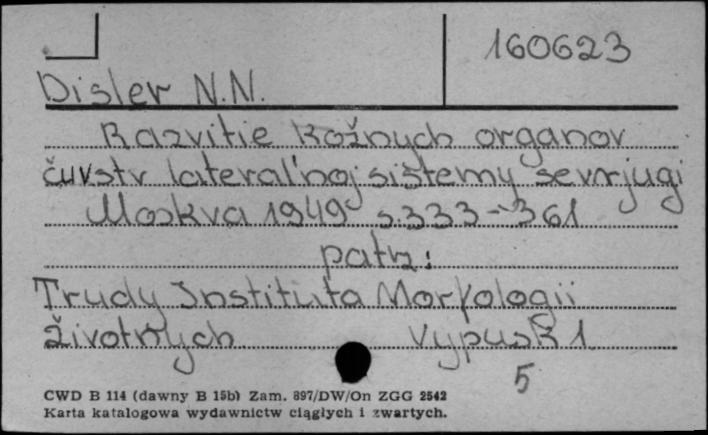 160623
Disler N.N.
Razvitie kožnych organov
čuvstv lateral'noj sistemy sevrjugi
Moskva 1949 s.333-361
patrz:
Trudy Instituta Morfologii
životnych Vypusk 1
5
CWD B 114 (dawny B 15b) Zam. 897/DW/On ZGG 2542
Karta katalogowa wydawnictw ciągłych i zwartych.